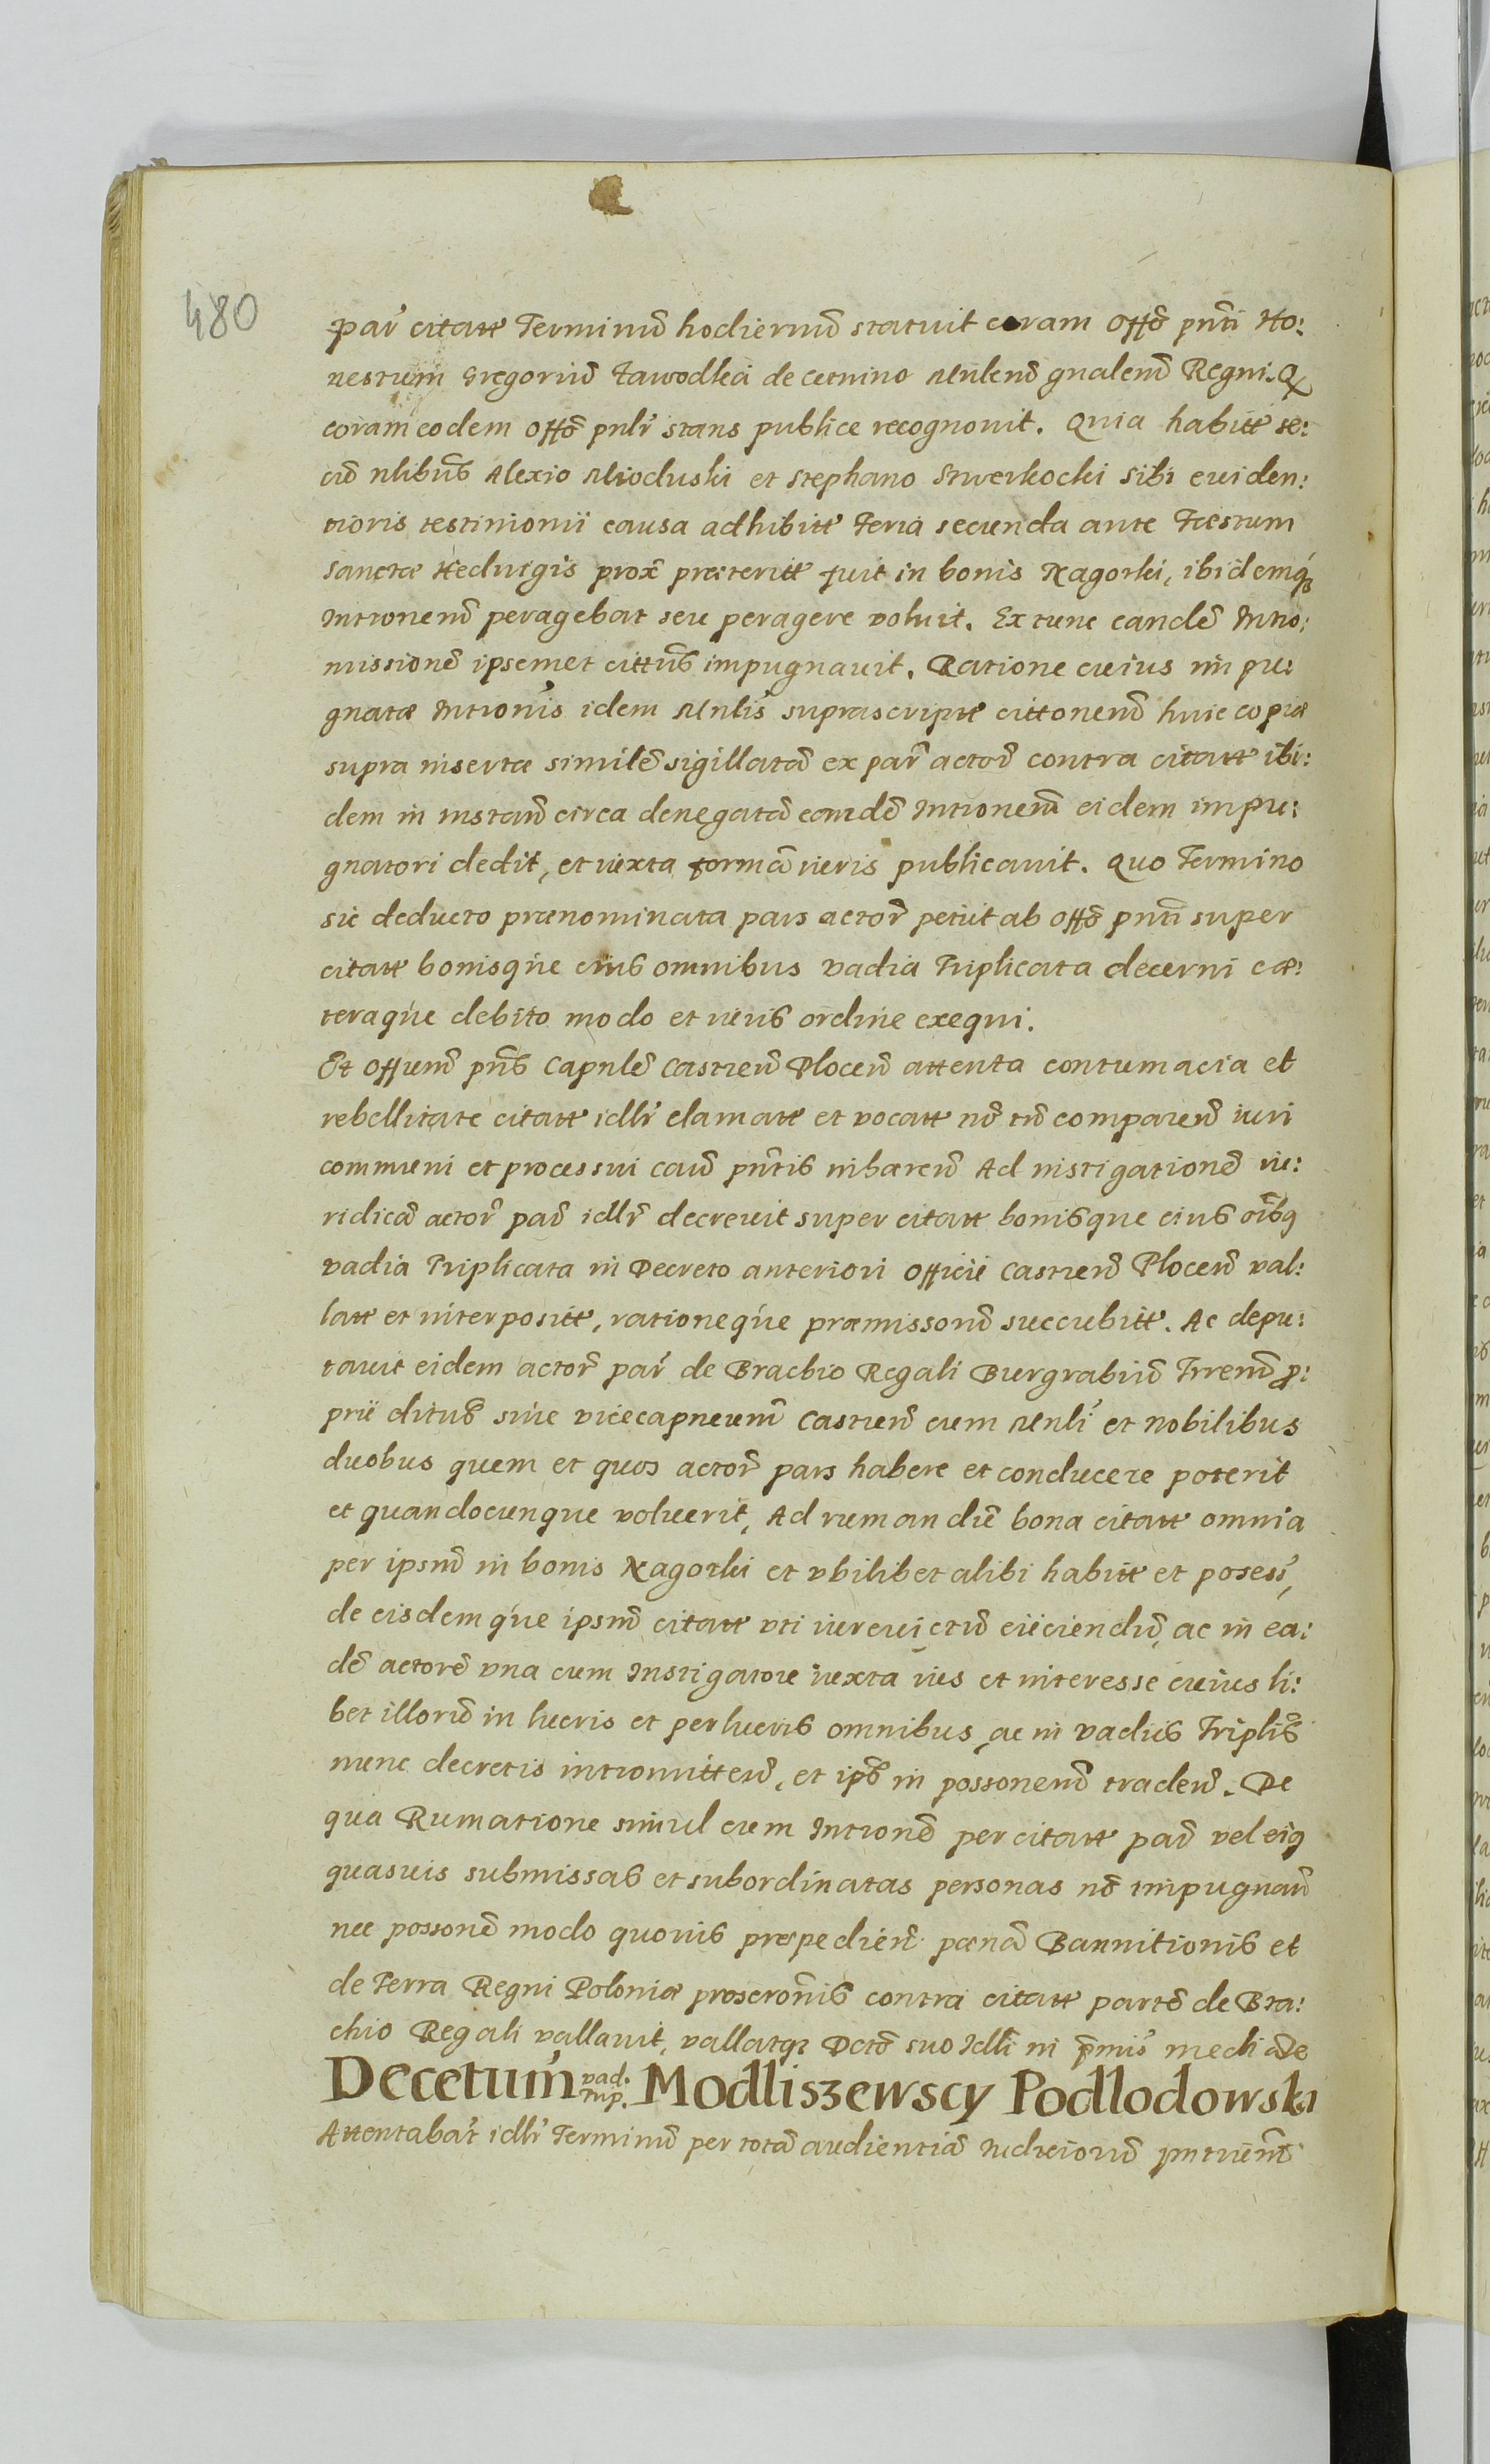 480
par citatt Terminū hodiernū statuit coram Offō pnti Ho:
nestum Gregoriū Zawodka de Cetnino Mnlenū gnalenū Regni. Q
coram eodem Offō pnlr stans publice recognovit. Quia habitt se:
cū nlibus Alexio Mioduski et Stephano Smerkocki sibi eviden:
tioris testimonii causa adhibitt Feria secunda ante Faestum
Sanctæ Hedvigis prox præteritt fuit in bonis Nagorki, ibidemq
Intronenū peragebat seu peragere voluit. Ex tunc eandē Intro:
missionē ipsemet cittus impugnavit. Ratione cuius impu:
gnatæ Intronis idem Mnlis suprascriptæ cittonenū huic copiæ
supra insertæ similē sigillatā ex par actor contra citatt ibi:
dem in instanū circa denegatā eandē Intronem eidem impu:
gnatori dedit, et iuxta formā iuris publicavit. Quo Termino
sic deducto prænominata pars actor petiit ab Offō pnti super
citatt bonisque eius omnibus vadia Triplicata decerni cæ:
teraque debito modo et iuris ordine exequi.
Et Offium pns Capnlē Castrenū Plocenū attenta contumacia et
rebellitate citatt idlr clamatt et vocatt nō tū comparenū iuri
communi et processui cauū pntis inhærenū Ad instigationē iu:
ridicā actor par idlr decrevit super citatt bonisque eius oībq
vadia Triplicata in Decreto anteriori Officii Castrenū Plocenū val:
latt et interpositt, rationeque præmissorū succubitt. Ac depu:
tavit eidem actor par de Brachio Regali Burgrabiū Trrenū p:
prie dictus sive vicecapneum Castrenū cum Mnli et Nobilibus
duobus quem et quos actor pars habere et conducere poterit
et quandocunque voluerit, Ad rumandū bona citatt omnia
per ipsū in bonis Nagorki et ubilibet alibi habitt et posess,
de eisdemque ipsū citatt uti iurevictū eiiciendū, ac in ea:
dē actorē una cum Instigatore iuxta ius et interesse cuius li:
bet illorū in lucris et perlucris omnibus, ac in vadiis Triplis
nunc decretis intromittenū, et ipō in possonenū tradenū. De
qua Rumatione simul cum Intronē per citatt par vel eiq
quasvis submissas et subordinatas personas nō impugnan
nec possonē modo quovis præpedien pænā Bannitionis et
de Terra Regni Poloniæ proscronis contra citatt partē de Bra:
chio Regali vallavit, vallatq Dctō suo Idlli in p̄mis mediāte
Decetum vad. Trip. Modliszewscy Podlodowski
Attentabat idlr Terminū per totā audientiā Iudiciorū pntium